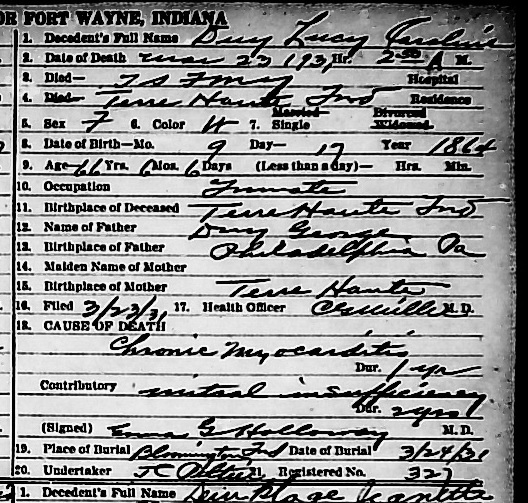 OR FORT WAYNE, INDIANA
1. Decedent's Full Name Drury Lucy
2. Date of Death Mar 23 1931 Hr. 2-50 A M.
3. Died— Hospital
4. Died— Terre Haute Ind Residence
5. Sex F 6. Color W 7. Married Single Divorced Widowed
8. Date of Birth—Mo. 9 Day— 17 Year 1864
9. Age 66 Yrs. 6 Mos. 6 Days (Less than a day)— Hrs. Min.
10. Occupation Inmate
11. Birthplace of Deceased Terre Haute Ind
12. Name of Father Drury George
13. Birthplace of Father Philadelphia Pa
14. Maiden Name of Mother
15. Birthplace of Mother Terre Haute
16. Filed 3/23/31 17. Health Officer M. D.
18. CAUSE OF DEATH
Chronic Myocarditis
Dur. 1 yr
Contributory mitral insufficiency
Dur. 2 yrs
(Signed) Emma G Holloway M. D.
19. Place of Burial Bloomington Ind Date of Burial 3/24/31
20. Undertaker 21. Registered No. 327
1. Decedent's Full Name